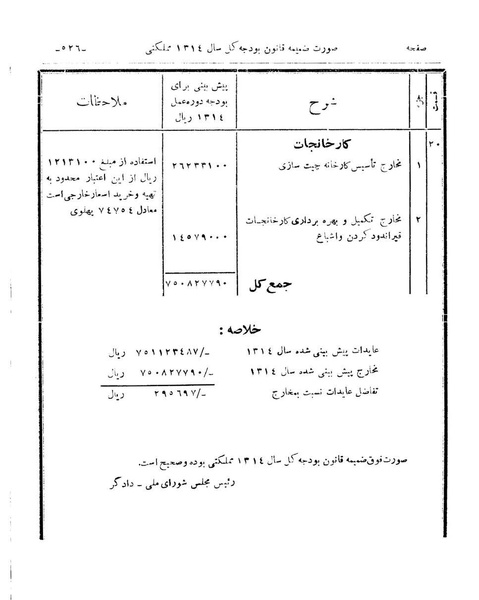 صفحه صورت ضمیمه قانون بودجه کل سال ۱۳۱٤ مملکتی -٥٢٦-
قسمت شرح پیش بینی برای بودجه دوره عمل ۱۳۱٤ ریال ملاحظات
٢٠ کارخانجات
۱ مخارج تأسیس کارخانه چیت سازی ٢٦٢٣٣١٠٠ استفاده از مبلغ ١٢١٣١٠٠
ریال از این اعتبار محدود به
تهیه وخرید اسعار خارجی است
معادل ٧٤٧٥٤ پهلوی
٢ مخارج تکمیل و بهره برداری کارخانجات
قیراندود کردن واشباع ١٤٥٧٩٠٠٠
جمع کل ٧٥٠٨٢٧٧٩٠
خلاصه :
عایدات پیش بینی شده سال ۱۳۱٤ ٧٥١١٢٣٤٨٧/- ریال
مخارج پیش بینی شده سال ۱۳۱٤ ٧٥٠٨٢٧٧٩٠/- ریال
تفاضل عایدات نسبت بمخارج ٢٩٥٦٩٧/- ریال
صورت فوق ضمیمه قانون بودجه کل سال ۱۳۱٤ مملکتی بوده وصحیح است.
رئیس مجلس شورای ملی - دادگر